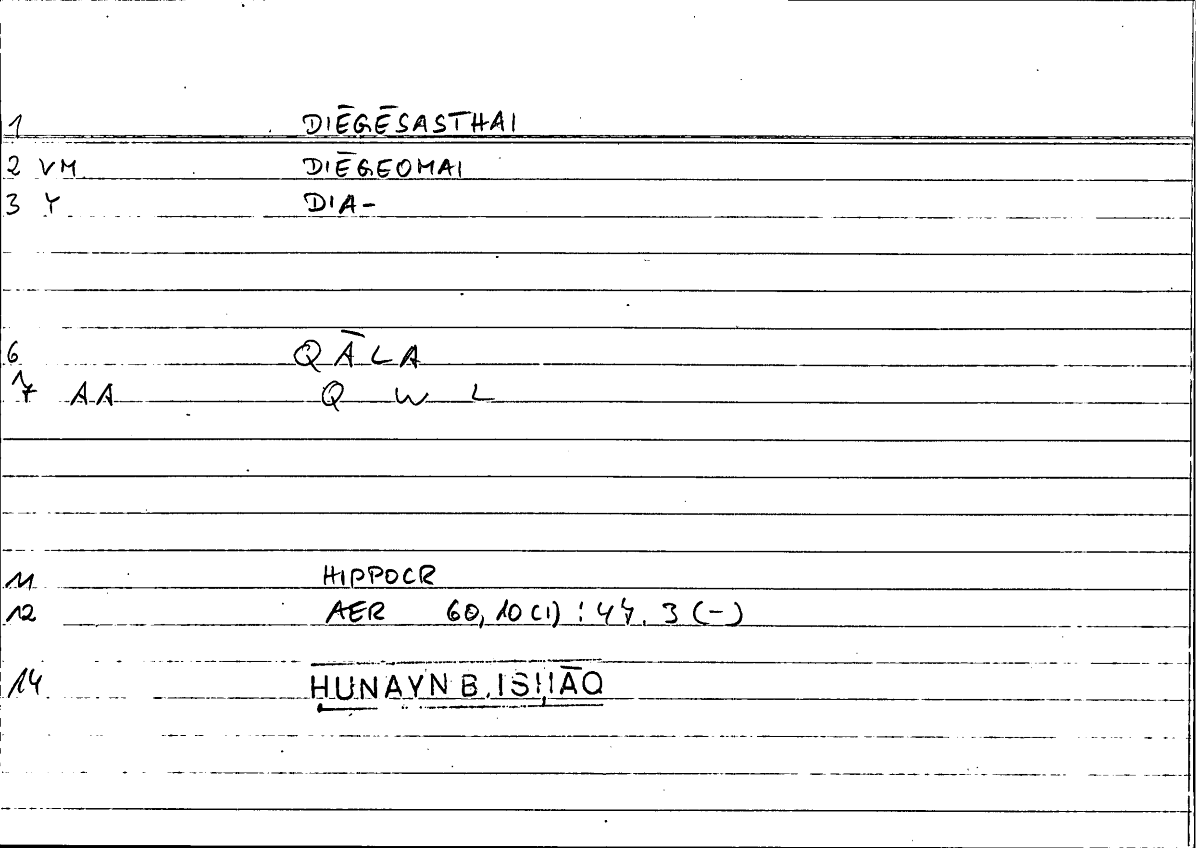 1 DIĒGĒSASTHAI
2 VM DIĒGEOMAI
3 Y DIA-
6 QĀLA
7 AA Q W L
11 HIPPOCR
12 AER 60,10(1) : 47. 3 (-)
14 HUNAYN B. ISḤĀQ